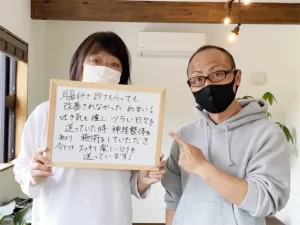 耳鼻科で診てもらっても
改善されなかった めまい！
吐き気も催し ツラい日々を
送っていた時 神経整体を
知り 施術をしていただき
今では、スッキリ楽しい日々を
送っています！